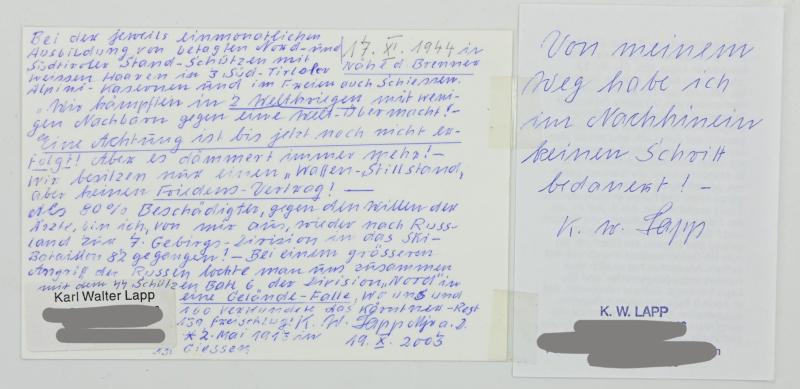 Bei der jeweils einmonatlichen
Ausbildung von betagten Nord- und
Südtiroler Stand-Schützen mit
weissen Haaren in 3 Süd-Tiroler
Alpini-Kasernen und im Freien auch Schiessen.
17. XI. 1944 in
Nähe d Brenner
"Wir kämpften in 2 Weltkriegen mit weni-
gen Nachbarn gegen eine Welt-Übermacht!-
Eine Achtung ist bis jetzt noch nicht er-
folgt! Aber es dämmert immer mehr!-
Wir besitzen nur einen "Waffen-Stillstand,
aber keinen Friedens-Vertrag! —
Als 80% Beschädigter, gegen den Willen der
Ärzte, bin ich, von mir aus, wieder nach Russ-
land zur 7. Gebirgs-Division in das Ski-
Bataillon 82 gegangen!- Bei einem grösseren
Angriff der Russen lockte man uns zusammen
mit dem 44 Schützen Batl. 6 der Division "Nord" in
eine Gelände-Falle, wo uns und
160 Verwundete das Kärntner-Rest
139 freischlug! K. W. Lapp Mjr a. D.
* 2. Mai 1913 in
Giessen
19. X. 2003
Karl Walter Lapp
Von meinem
Weg habe ich
im Nachhinein
keinen Schritt
bedauert! -
K. W. Lapp
K. W. LAPP